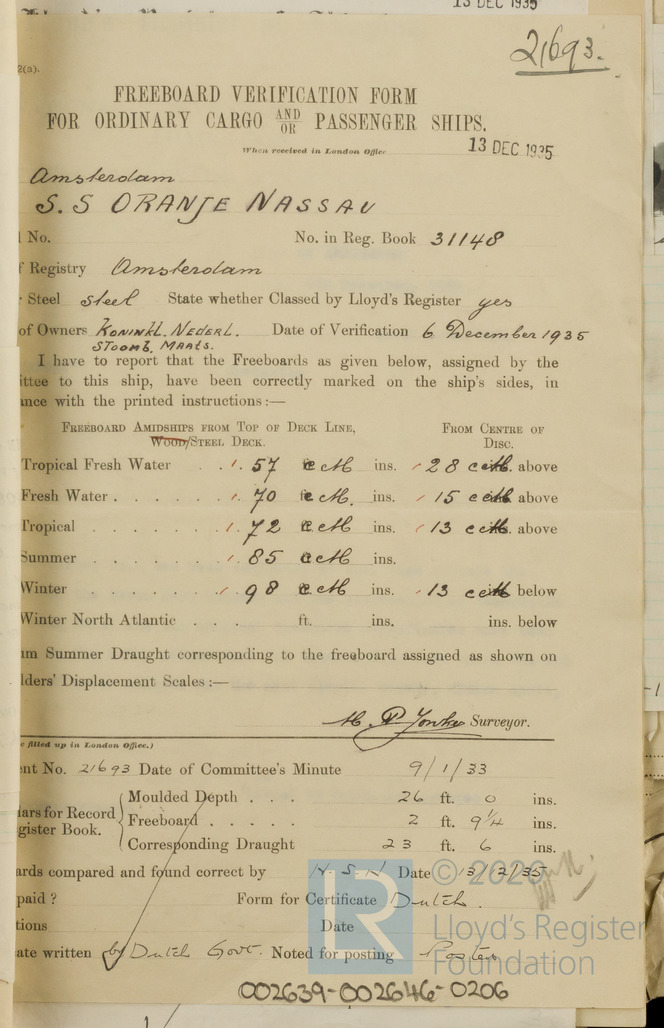 13 DEC 1935
21693.
2(a).
FREEBOARD VERIFICATION FORM
FOR ORDINARY CARGO AND/OR PASSENGER SHIPS.
When received in London Office 13 DEC 1935
Amsterdam
S. S ORANJE NASSAU
No. No. in Reg. Book 31148
f Registry Amsterdam
Steel steel State whether Classed by Lloyd's Register yes
of Owners KONINKL. NEDERL. Date of Verification 6 December 1935
STOOMB. MAATS.
I have to report that the Freeboards as given below, assigned by the
ittee to this ship, have been correctly marked on the ship's sides, in
ance with the printed instructions:—
FREEBOARD AMIDSHIPS FROM TOP OF DECK LINE, FROM CENTRE OF
WOOD/STEEL DECK. DISC.
Tropical Fresh Water . . 1. 57 cM ins. 28 cM. above
Fresh Water . . . . 1. 70 cM. ins. 15 cM above
Tropical . . . . . . 1. 72 cM ins. 13 cM. above
Summer . . . . . . 1. 85 cM ins.
Winter . . . . . . 1. 98 cM ins. 13 cM below
Winter North Atlantic . . . ft. ins. ins. below
um Summer Draught corresponding to the freeboard assigned as shown on
lders' Displacement Scales:—
Surveyor.
e filled up in London Office.)
nt No. 21693 Date of Committee's Minute 9/1/33
lars for Record Moulded Depth . . . 26 ft. 0 ins.
gister Book. Freeboard . . . . 2 ft. 9¼ ins.
Corresponding Draught 23 ft. 6 ins.
ards compared and found correct by H.S.N Date 13/12/35
paid? Form for Certificate Dutch.
tions Date
ate written by Dutch Govt. Noted for posting Posted
© 2020
Lloyd's Register
Foundation
LR
002639-002646-0206